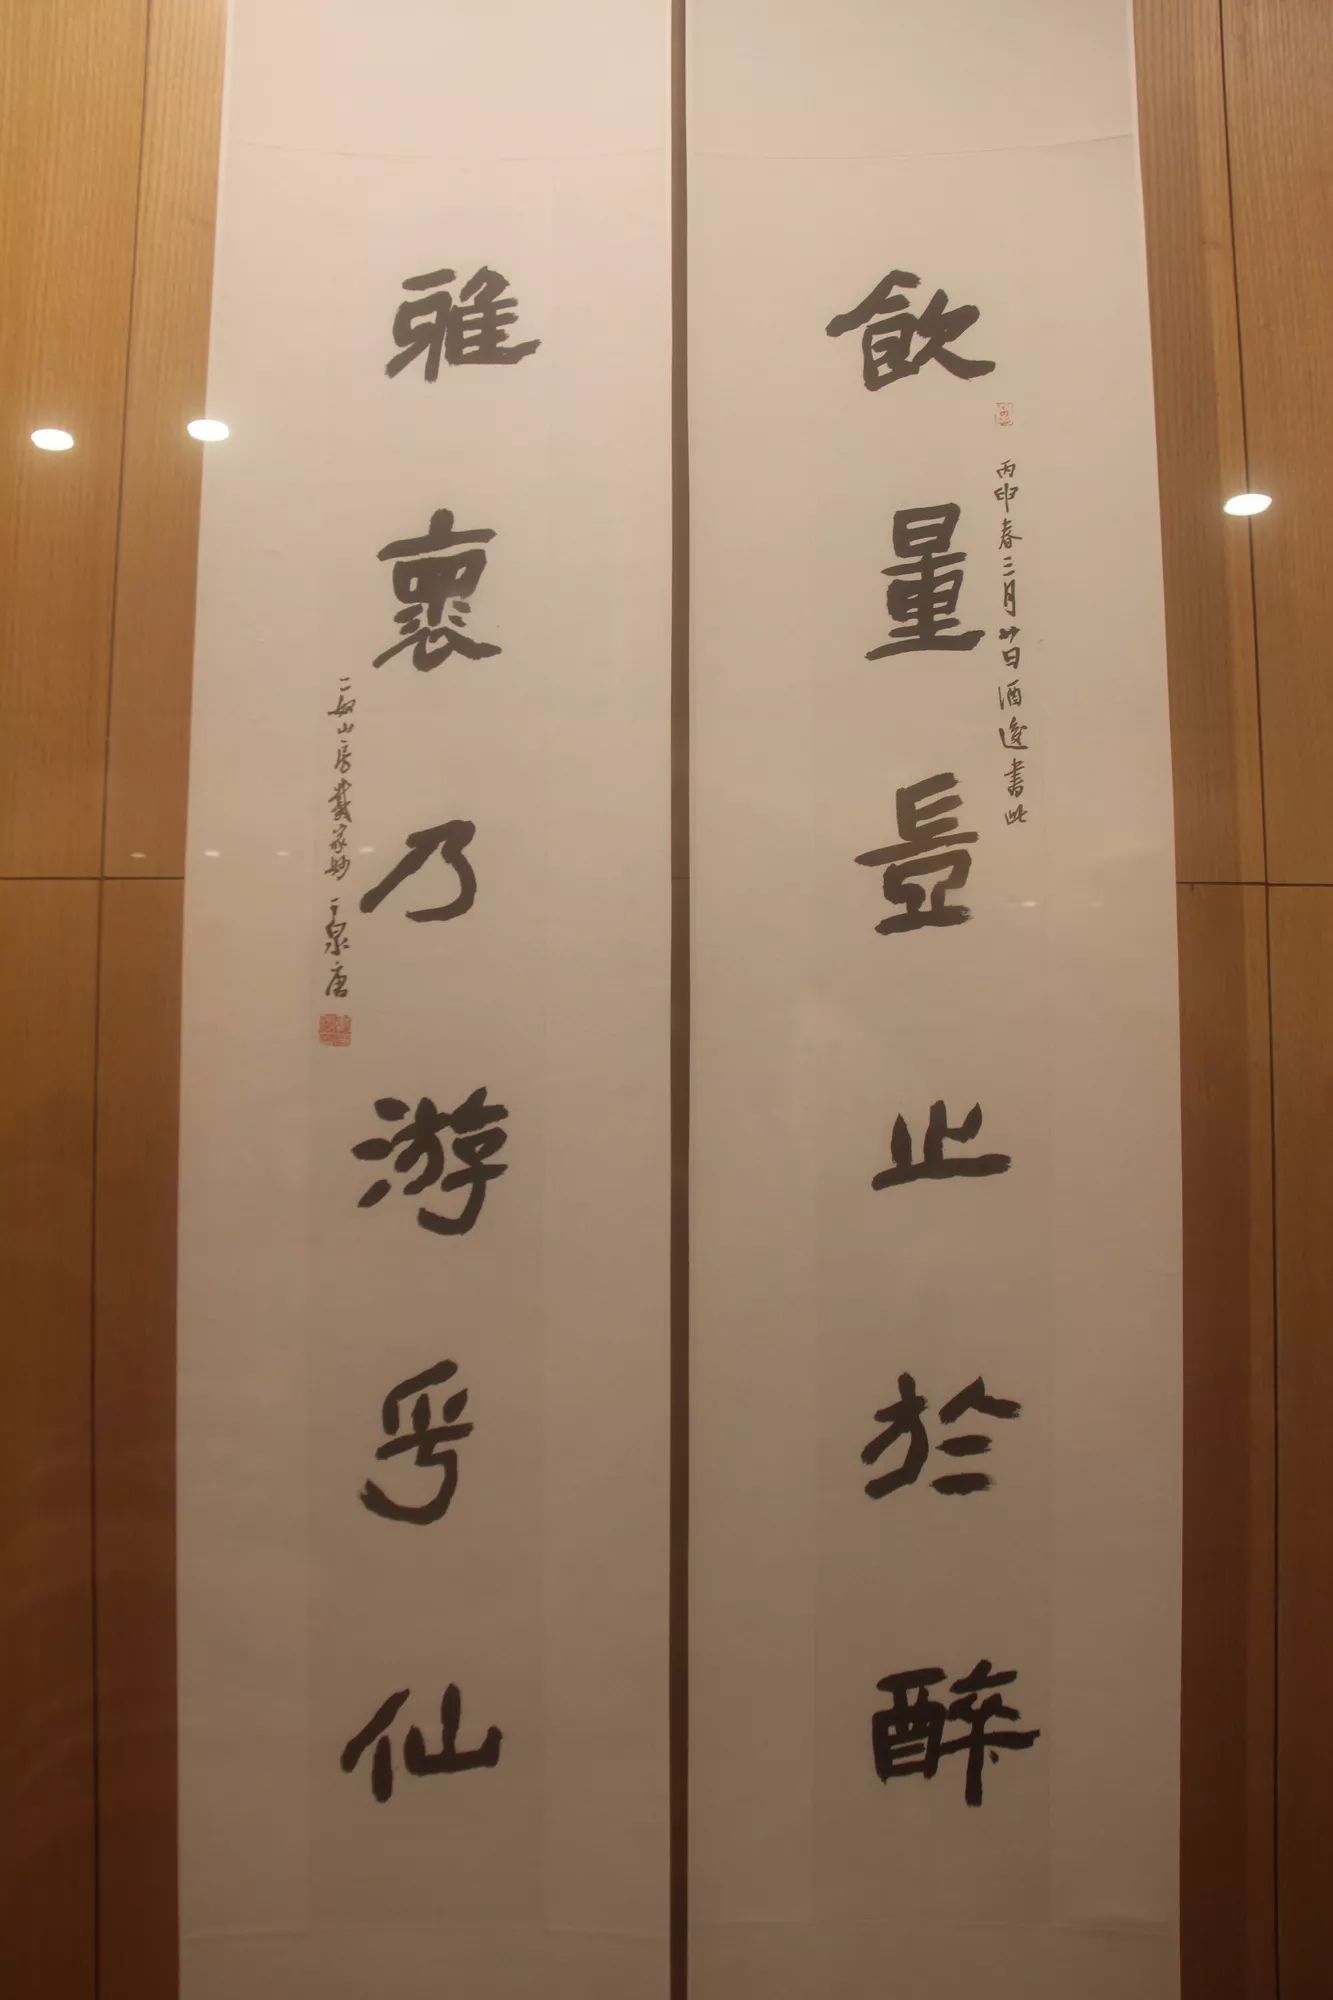 飲量豈止於醉
丙申春三月廿日酒後書此
雅褱乃游乎仙
二山房戴家妙于泉唐